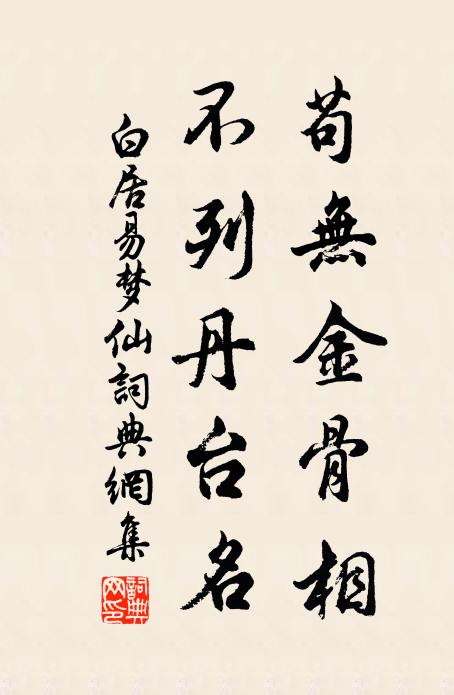 苟無金骨相
不列丹台名
白居易梦仙詞典網集
詞典网印